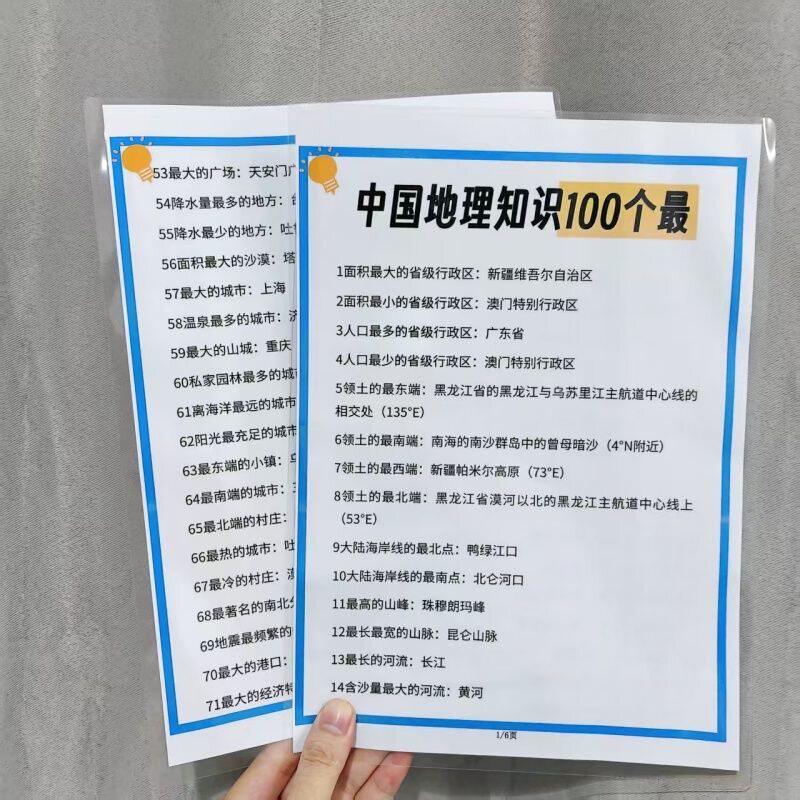 53最大的广场：天安门广
54降水量最多的地方：
55降水最少的地方：吐
56面积最大的沙漠：塔
57最大的城市：上海
58温泉最多的城市：
59最大的山城：重庆
60私家园林最多的城
61离海洋最远的城市
62阳光最充足的城市
63最东端的小镇：
64最南端的城市：
65最北端的村庄：
66最热的城市：吐
67最冷的村庄：
68最著名的南北
69地震最频繁的
70最大的港口：
71最大的经济特
中国地理知识100个最
1面积最大的省级行政区：新疆维吾尔自治区
2面积最小的省级行政区：澳门特别行政区
3人口最多的省级行政区：广东省
4人口最少的省级行政区：澳门特别行政区
5领土的最东端：黑龙江省的黑龙江与乌苏里江主航道中心线的
相交处（135°E）
6领土的最南端：南海的南沙群岛中的曾母暗沙（4°N附近）
7领土的最西端：新疆帕米尔高原（73°E）
8领土的最北端：黑龙江省漠河以北的黑龙江主航道中心线上
（53°E）
9大陆海岸线的最北点：鸭绿江口
10大陆海岸线的最南点：北仑河口
11最高的山峰：珠穆朗玛峰
12最长最宽的山脉：昆仑山脉
13最长的河流：长江
14含沙量最大的河流：黄河
1/6页